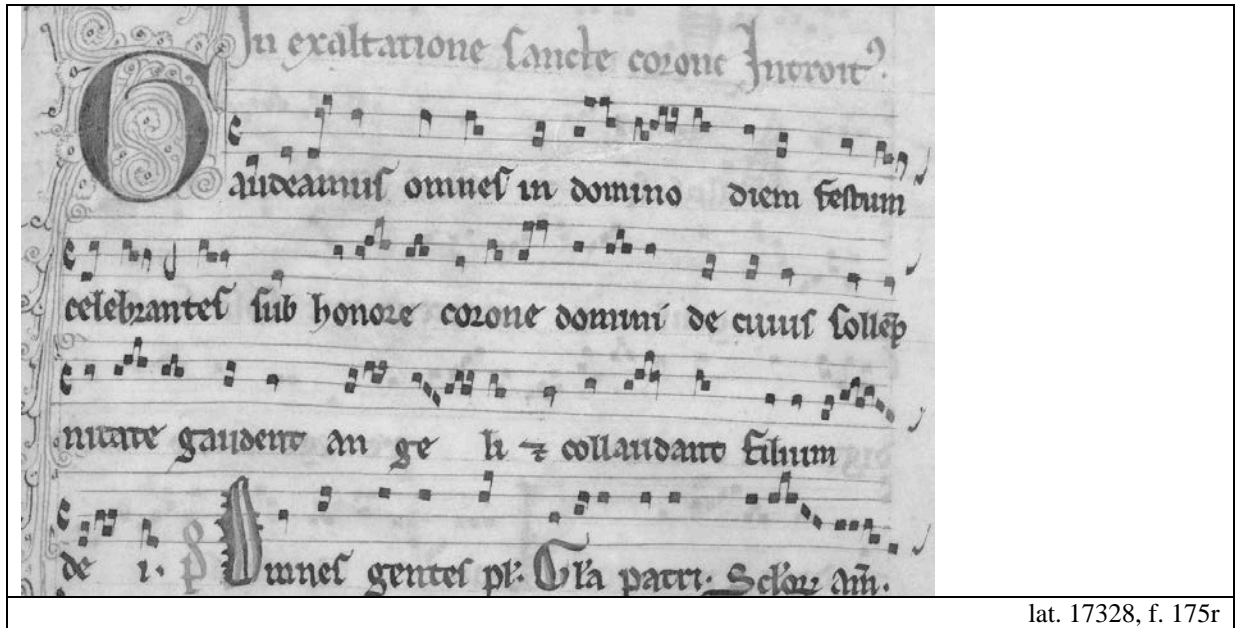 In exaltatione sancte corone Introit9.
Gaudeamus omnes in domino diem festum
celebrantes sub honore corone domini de cuius sollēp
nitate gaudent an ge li ⁊ collaudant filium
de i. P Omnes gentes pl. Gl'a patri. Sclor̄ am̄.
lat. 17328, f. 175r